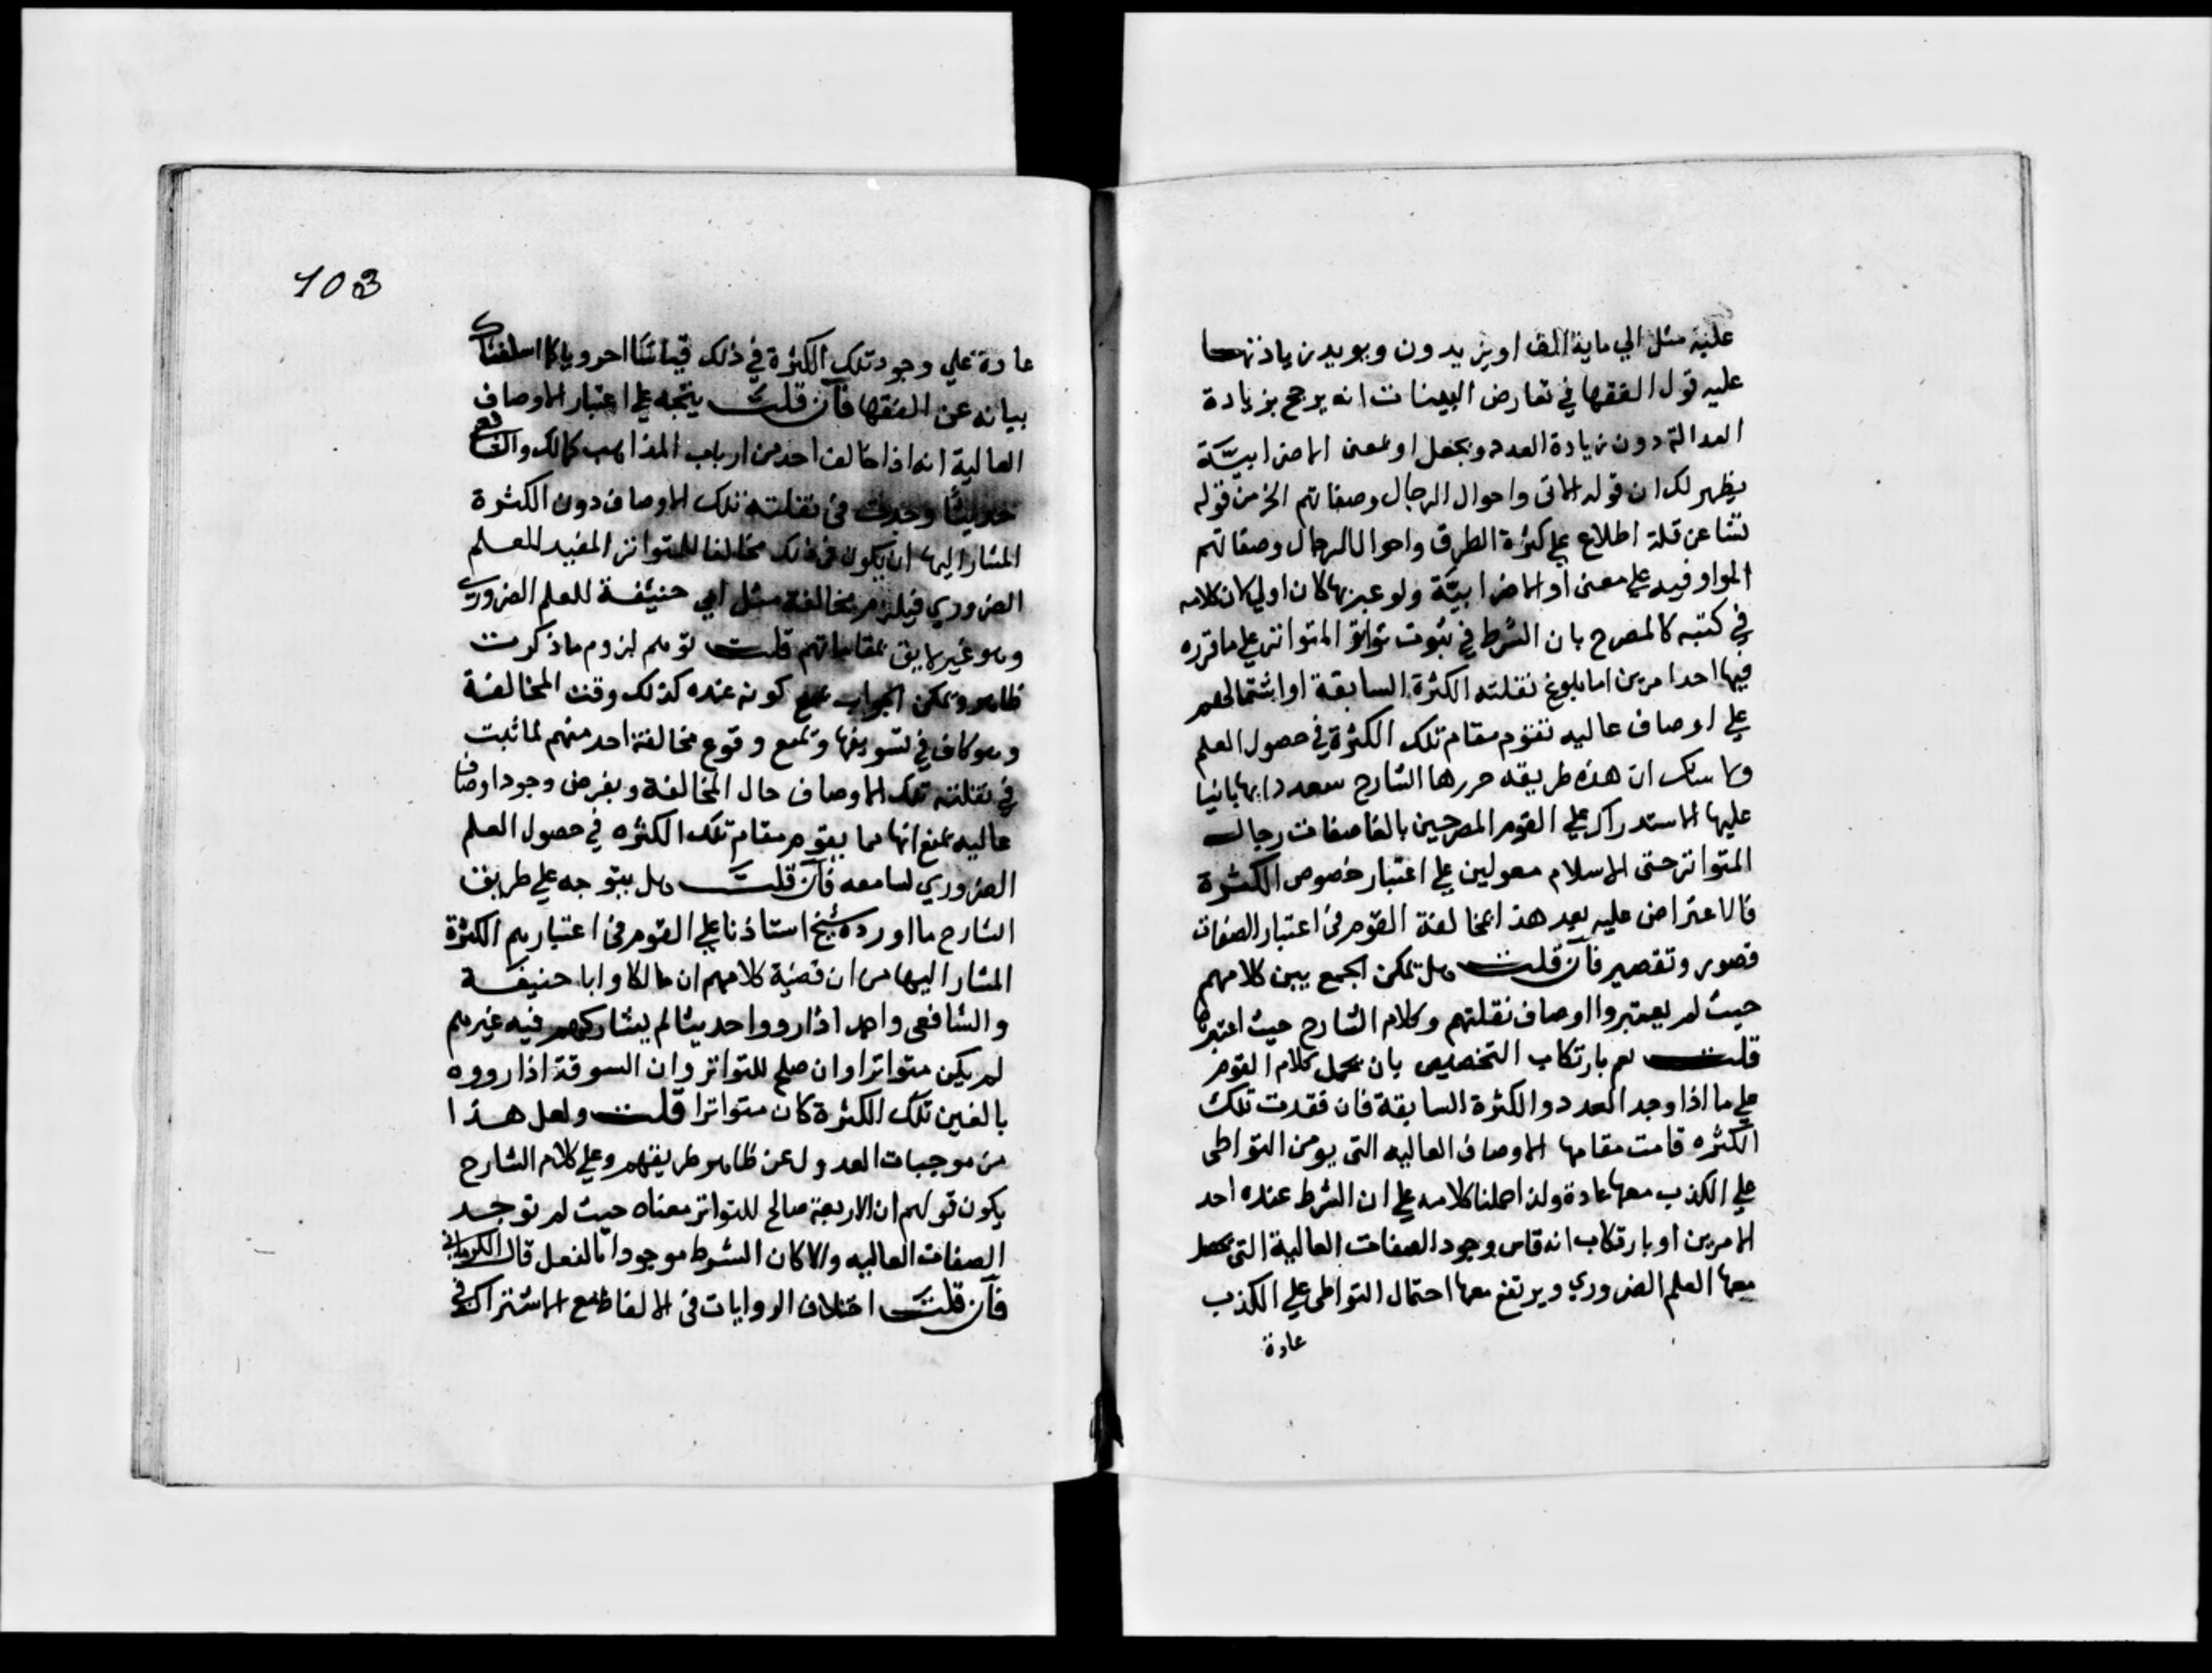 علية مثل الي ماية الف او يزيدون ويويد زيادتها
عليه قول الفقها في تعارض البينات انه يرجح بزيادة
العدالة دون زيادة العدد وبجعل او بمعنى الاضرابية
يظهر لك ان قوله الاتى واحوال الرجال وصفاتهم الخ من قوله
نشا عن قلة اطلاع علي كثرة الطرق واحوال الرجال وصفاتهم
الواو فيه علي معنى او الاضرابية ولو عبر بها كان اولي لان كلامه
في كتبه كالمصرح بان الشرط في ثبوت تواتر المتواتر علي ما قرره
فيها احد امرين اما بلوغ نقلته الكثرة السابقة او اشتمالهم
علي اوصاف عاليه تقوم مقام تلك الكثرة في حصول العلم
ولا شك ان هذه طريقه حررها الشارح
عليها الاستدراك علي القوم المصرحين بالغا صفات رجال
المتواتر حتى الاسلام معولين علي اعتبار خصوص الكثرة
فالاعتراض عليه بعد هذا بمخالفة القوم في اعتبار الصفات
قصور وتقصير فان قلت هل يمكن الجمع بين كلامهم
حيث لم يعتبروا اوصاف نقلتهم وكلام الشارح حيث اعتبرها
قلت نعم بارتكاب التخصيص بان يحمل كلام القوم
علي ما اذا وجد العدد والكثرة السابقة فان فقدت تلك
الكثره قامت مقامها الاوصاف العاليه التى يومن التواطى
علي الكذب معها عادة ولذا حملنا كلامه علي ان الشرط عنده احد
الامرين او بارتكاب انه قاس وجود الصفات العالية التى يحصل
معها العلم الضروري ويرتفع معها احتمال التواطى علي الكذب
عادة
103
عادة علي وجود تلك الكثرة في ذلك قياسا احرويا كما اسلفناك
بيانه عن الفقها فان قلت يتجه علي اعتبار الاوصاف
العالية انه اذا خالف احد من ارباب المذاهب كمالك والشافعي
حديثا وجدت في نقلته تلك الاوصاف دون الكثرة
المشار اليها ان يكون في ذلك مخالفا للتواتر المفيد للعلم
الضروري فيلزم مخالفة مثل ابي حنيفة للعلم الضروري
وهو غير لايق بمقاماتهم قلت توهم لزوم ما ذكرت
ظاهر ويمكن الجواب بمنع كونه عنده كذلك وقت المخالفة
وهو كاف في تسويغها وبمنع وقوع مخالفة احد منهم لما ثبت
في نقلته تلك الاوصاف حال المخالفة وبفرض وجود اوصاف
عاليه بمنع انها مما يقوم مقام تلك الكثره في حصول العلم
الضروري لسامعه فان قلت هل يتوجه علي طريق
الشارح ما اورده شيخ استاذنا علي القوم في اعتبارهم الكثرة
المشار اليها من ان قضية كلامهم ان مالكا وابا حنيفة
والشافعى واحمد اذا رووا حديثا لم يشاركهم فيه غيرهم
لم يكن متواترا وان صلح للتواتر وان السوقة اذا رووه
بالغين تلك الكثرة كان متواترا قلت ولعل هذا
من موجبات العدول عن ظاهر طريقهم وعلي كلام الشارح
يكون قولهم ان الاربعة صالح للتواتر معناه حيث لم توجد
الصفات العاليه والا كان الشرط موجودا بالفعل قال الكرماني
فان قلت اختلاف الروايات في الالفاظ مع الاشتراك في